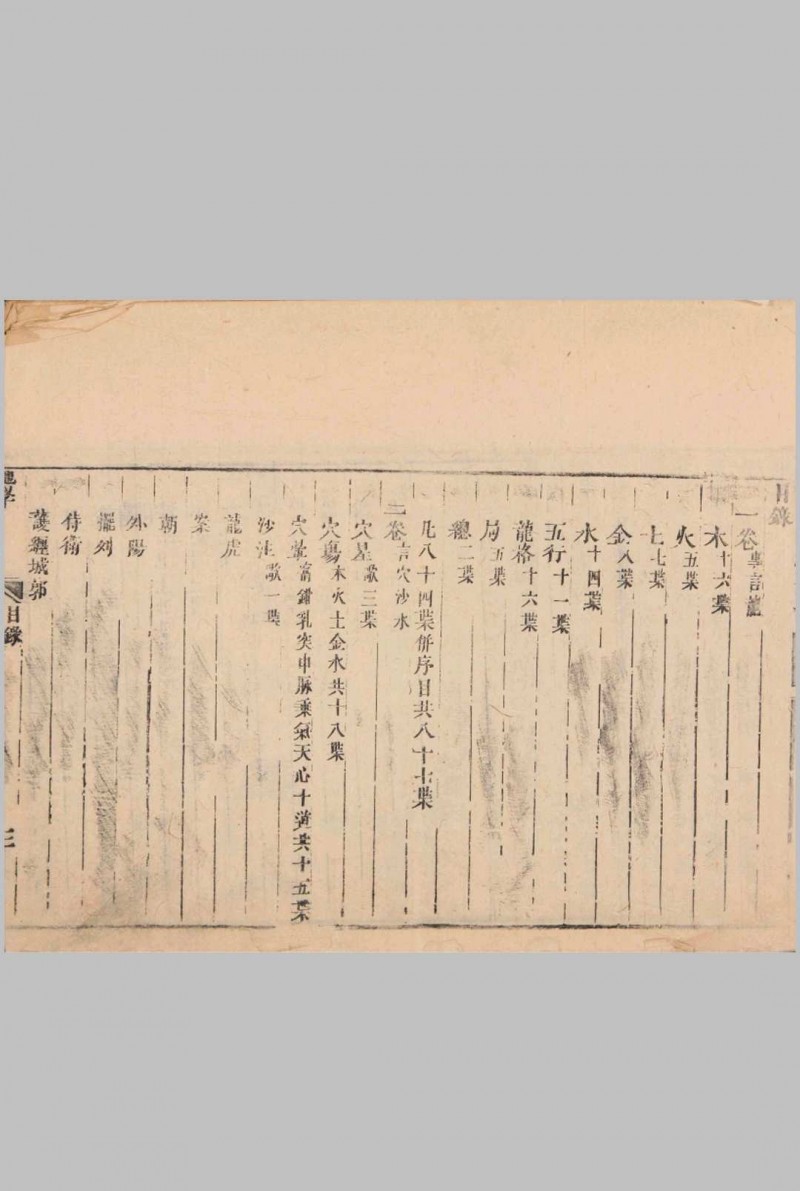 目錄
一卷 專言龍
木 十六葉
火 五葉
土 七葉
金 八葉
水 十四葉
五行 十一葉
龍格 十六葉
局 五葉
總 二葉
凡八十四葉併序目共八十七葉
二卷 言穴沙水
穴星 歌三葉
穴場 木火土金水共十八葉
穴暈 窩鉗乳突中脉乘氣天心十道共十五葉
沙法 歌一葉
龍虎
案
朝
外陽
擺列
侍衛
護纒城郭
地學
目錄
三